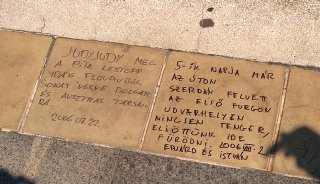 JUDYJUDY MEG
A PITZ LESTOPP
IDÁIG
SOKAT VÉRVE BOLGÁR
ÉS AUSZTRÁL TÁRSAI-
RA.
2006.07.22.
5-IK NAPJA MÁR
AZ ÚTON
SZERDÁN FELVETT
AZ ELSŐ FURGON
UDVARHELYEN
NINCSEN TENGER,
ELJÖTTÜNK IDE
FÜRÖDNI. 2006
EDUÁRD ÉS ISTVÁN